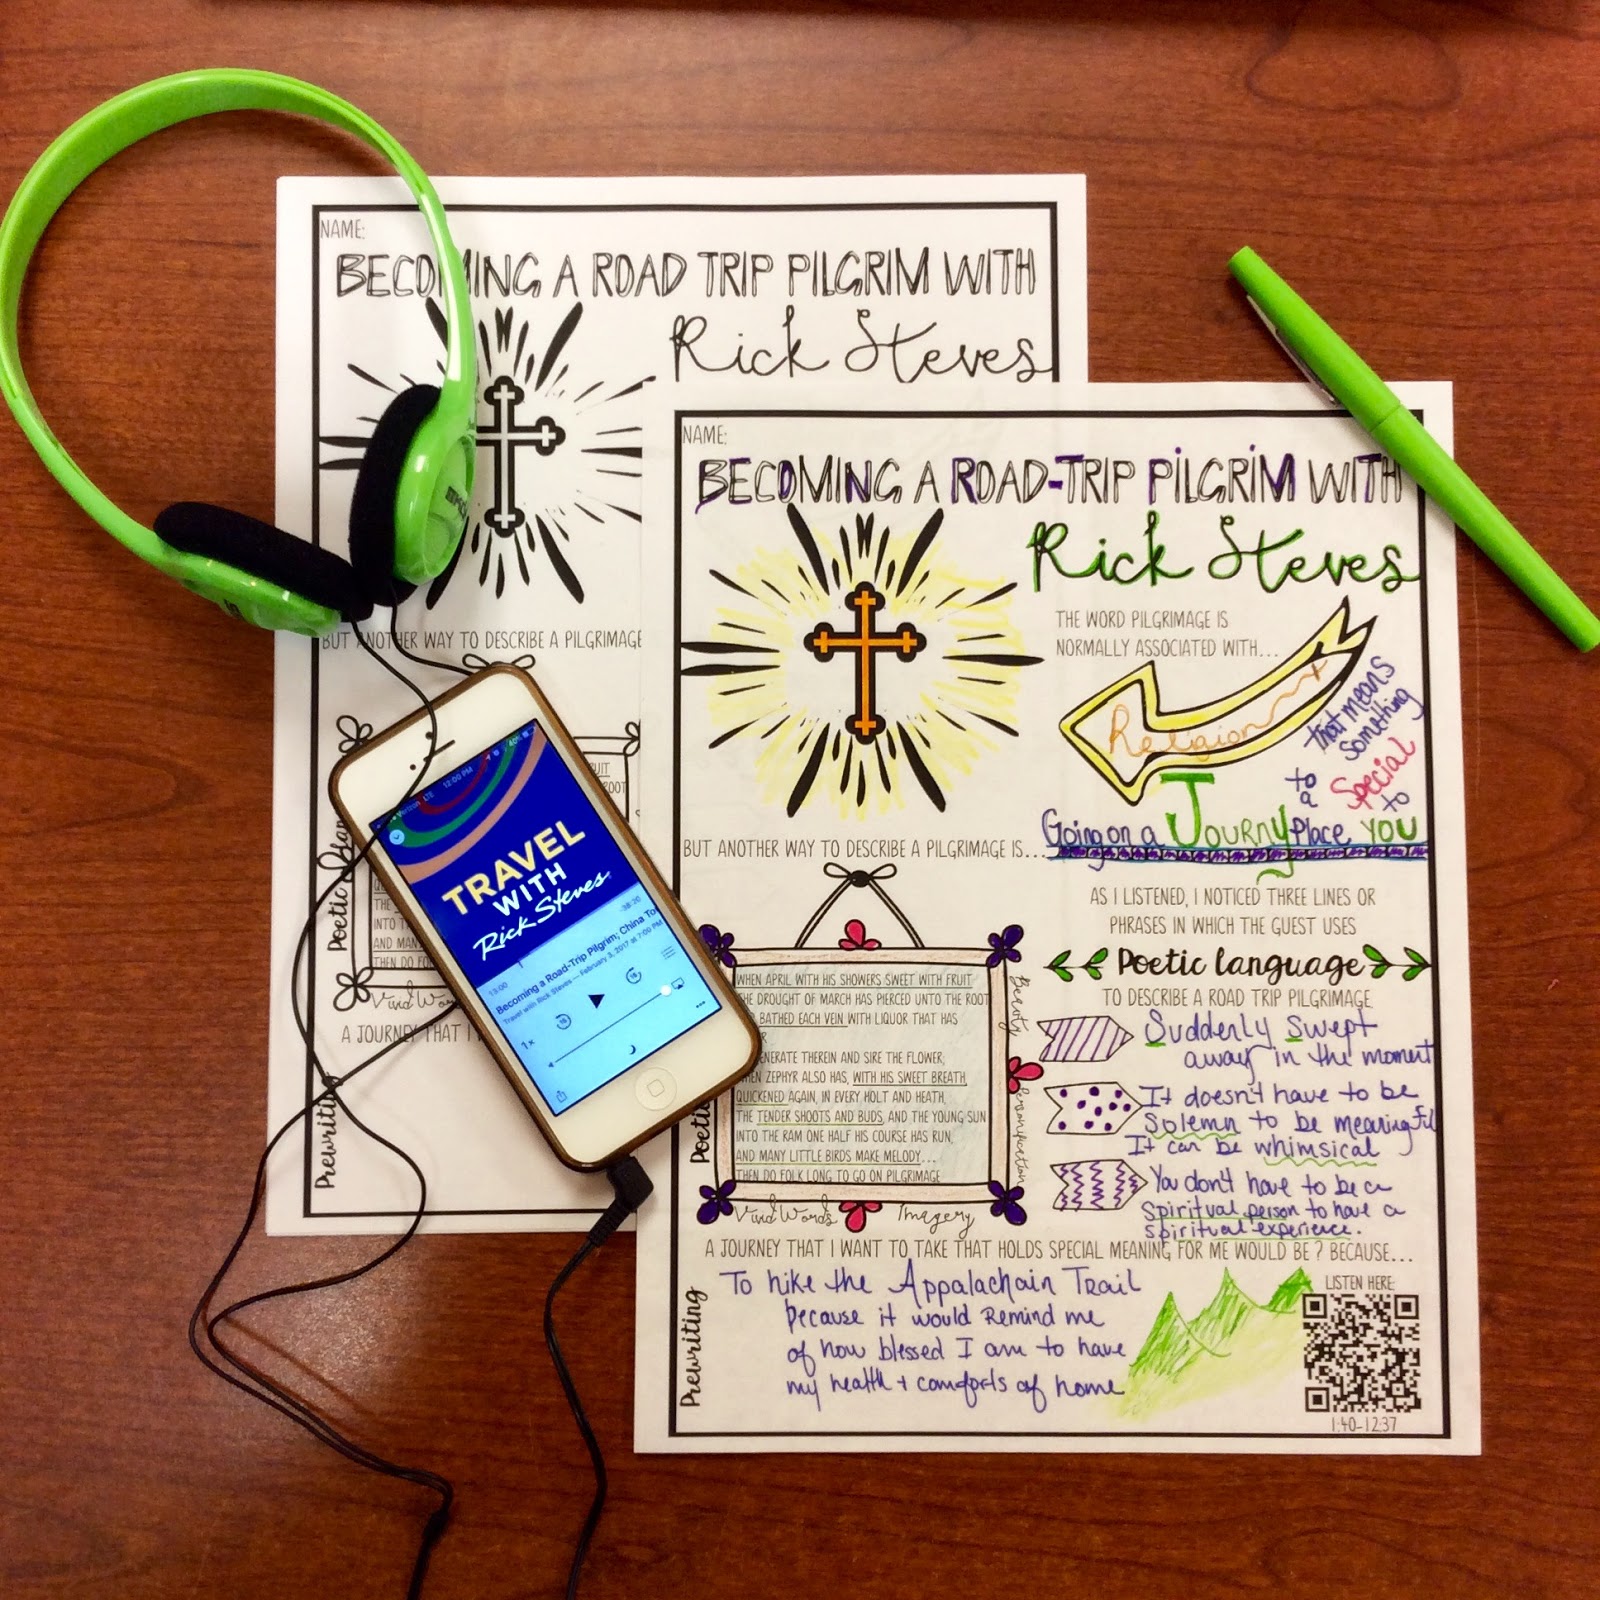 NAME:
BECOMING A ROAD TRIP PILGRIM WITH
Rick Steves
BUT ANOTHER WAY TO DESCRIBE A PILGRIMAGE
RUIT
ROOT
Poetic
THE
INTO T
AND MAN
THEN DO FO
Vivid Wor
A JOURNEY THAT I
Prewriting
Verizon LTE
12:00 PM
40%
TRAVEL
WITH
Rick Steves
13:00
-38:20
Becoming a Road-Trip Pilgrim; China To
Travel with Rick Steves — February 3, 2017 at 7:00 PM
15
15
1x
NAME:
BECOMING A ROAD-TRIP PILGRIM WITH
Rick Steves
THE WORD PILGRIMAGE IS
NORMALLY ASSOCIATED WITH...
Religion
BUT ANOTHER WAY TO DESCRIBE A PILGRIMAGE IS...
Going on a Journy to a Place that means something Special to YOU
AS I LISTENED, I NOTICED THREE LINES OR
PHRASES IN WHICH THE GUEST USES
Poetic language
TO DESCRIBE A ROAD TRIP PILGRIMAGE
Suddenly swept
away in the moment
It doesn't have to be
Solemn to be meaningful
It can be whimsical
You don't have to be a
Spiritual person to have a
Spiritual experience.
Poetic
WHEN APRIL WITH HIS SHOWERS SWEET WITH FRUIT
THE DROUGHT OF MARCH HAS PIERCED UNTO THE ROOT
BATHED EACH VEIN WITH LIQUOR THAT HAS
ENERATE THEREIN AND SIRE THE FLOWER;
WHEN ZEPHYR ALSO HAS, WITH HIS SWEET BREATH,
QUICKENED AGAIN, IN EVERY HOLT AND HEATH,
THE TENDER SHOOTS AND BUDS, AND THE YOUNG SUN
INTO THE RAM ONE HALF HIS COURSE HAS RUN,
AND MANY LITTLE BIRDS MAKE MELODY...
THEN DO FOLK LONG TO GO ON PILGRIMAGE
Beauty
Personification
Vivid Words
Imagery
A JOURNEY THAT I WANT TO TAKE THAT HOLDS SPECIAL MEANING FOR ME WOULD BE ? BECAUSE...
Prewriting
To hike the Appalachain Trail
because it would Remind me
of how blessed I am to have
my health + comforts of home
LISTEN HERE:
1:40-12:37